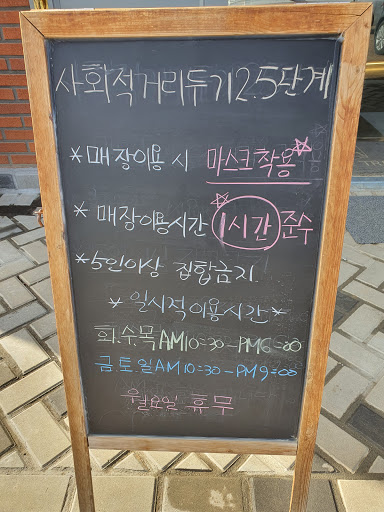 사회적거리두기2.5단계
*매장이용 시 마스크착용
*매장이용시간 1시간 준수
*5인이상 집합금지.
*일시적이용시간*
화.수.목 AM10:30-PM6:00
금토일AM10:30-PM9:00
월요일 휴무